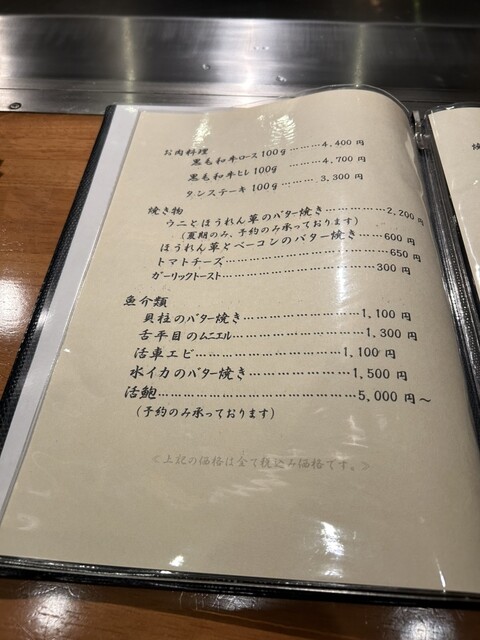 お肉料理
黒毛和牛ロース100g………4,400円
黒毛和牛ヒレ100g ………4,700円
タンステーキ100g………3,300円
焼き物
ウニとほうれん草のバター焼き……………2,200円
(夏期のみ、予約のみ承っております)
ほうれん草とベーコンのバター焼き………600円
トマトチーズ………………………………650円
ガーリックトースト………………………300円
魚介類
貝柱のバター焼き……………………1,100円
舌平目のムニエル……………………1,300円
活車エビ……………………………1,100円
水イカのバター焼き…………………1,500円
活鮑……………………………………5,000円～
(予約のみ承っております)
<上記の価格は全て税込み価格です。>